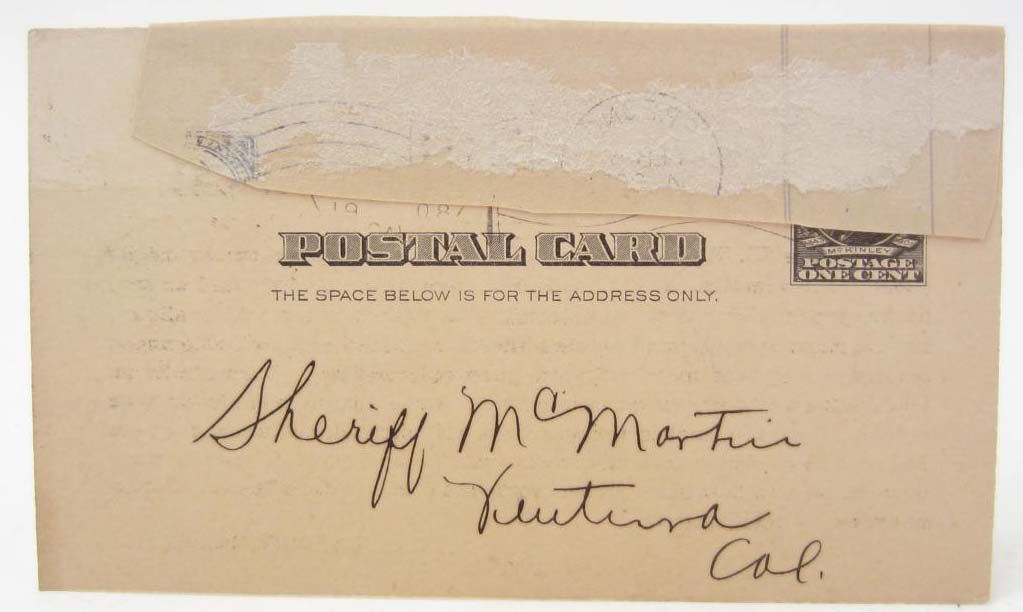 POSTAL CARD
McKINLEY
POSTAGE
ONE CENT
THE SPACE BELOW IS FOR THE ADDRESS ONLY.
Sheriff McMartin
Ventura
Cal.